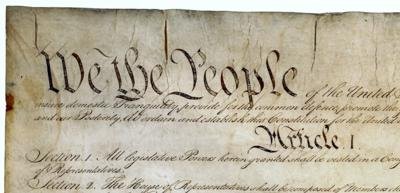 We the People of the United
insure domestic Tranquility, provide for the common defence, promote the
and our Posterity, do ordain and establish this Constitution for the United
Article I.
Section 1. All legislative Powers herein granted shall be vested in a Cong
of Representatives.
Section 2. The House of Representatives shall be composed of Members